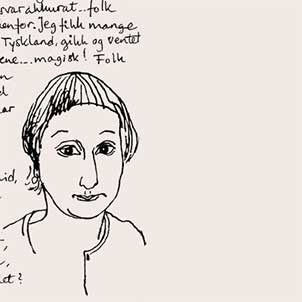 svar akkurat... folk
mentor. Jeg fikk mange
Tyskland, gikk og ventet
ene.... magisk! Folk
en
el
ar
id,
et?